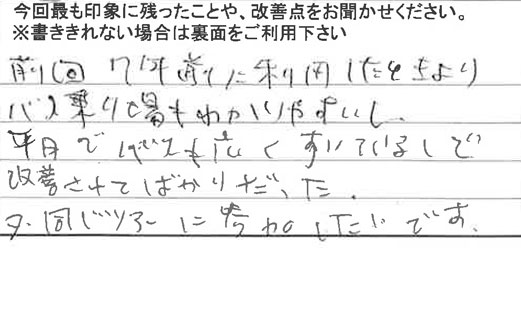 今回最も印象に残ったことや、改善点をお聞かせください。
※書ききれない場合は裏面をご利用下さい
前回 7年前に利用したときより
バス乗り場もわかりやすいし、
平日でバスも広くすいているしで
改善されてばかりだった。
又同じツアーに参加したいです。